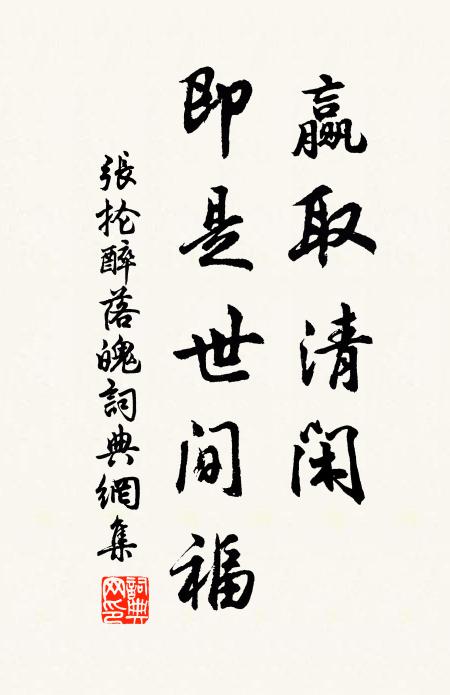 贏取清闲
即是世间福
張抡醉落魄詞典網集
詞典网印